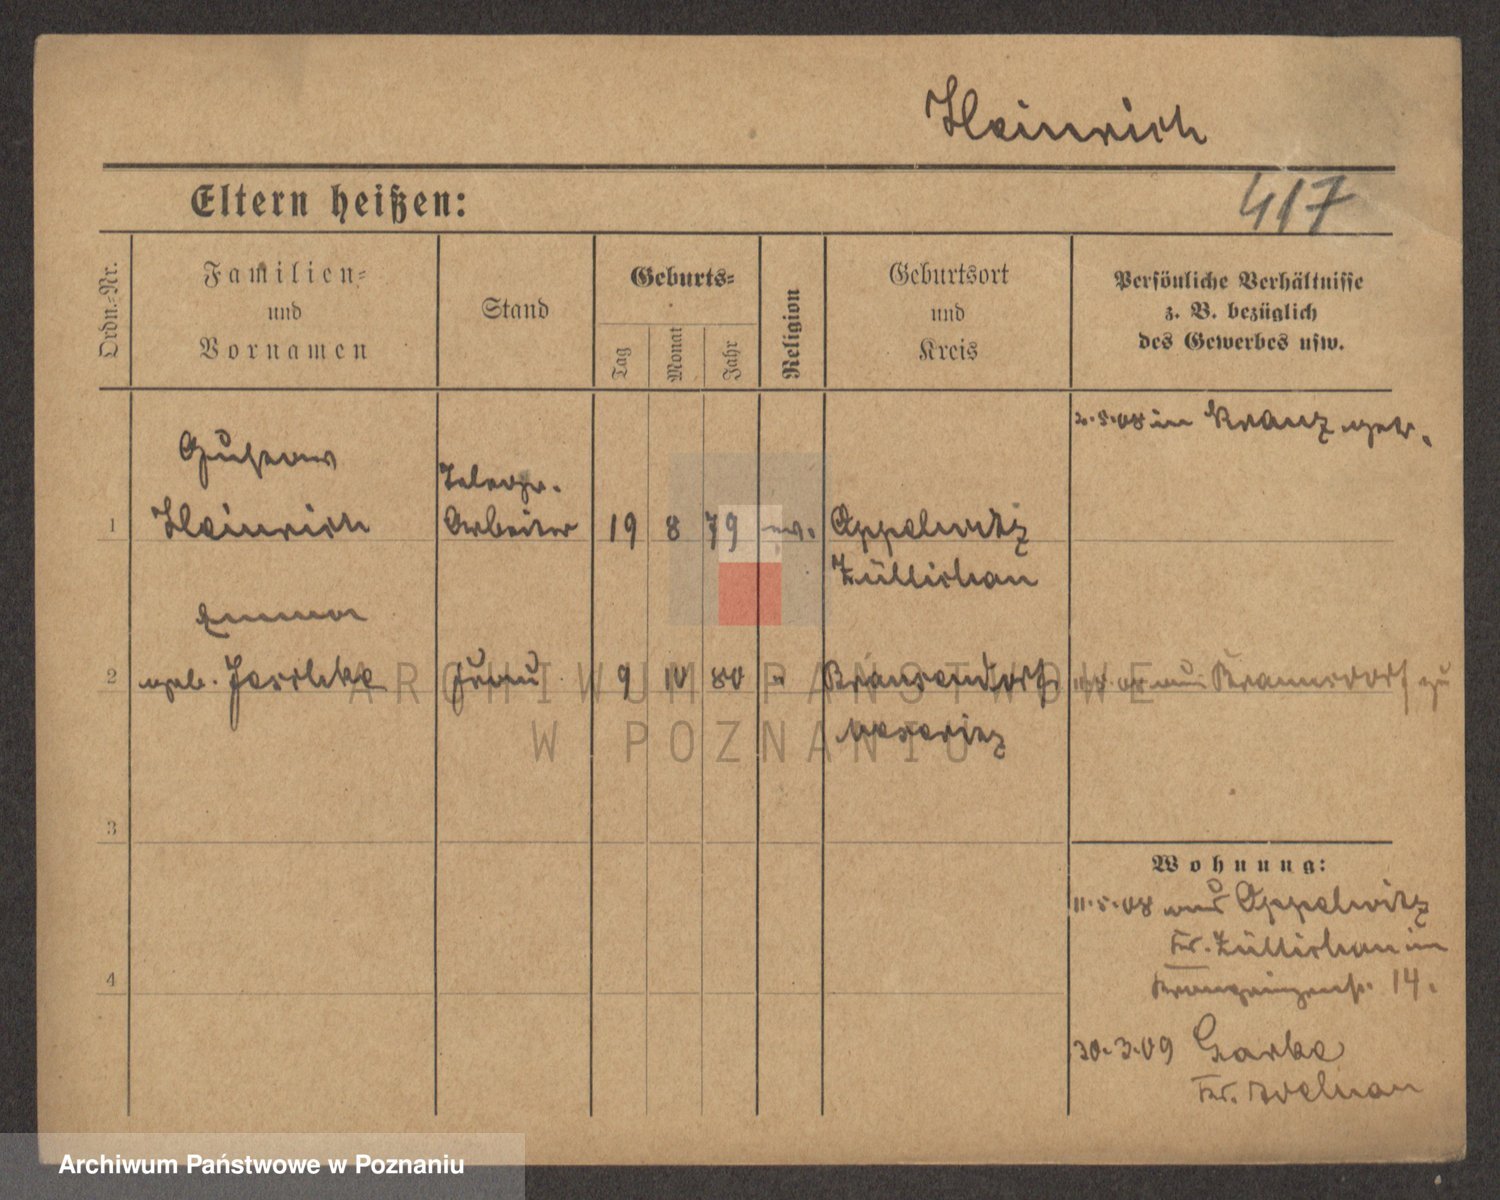 Heinrich
Eltern heißen:
417
Ordn.-Nr.
Familien-
und
Vornamen
Stand
Geburts-
Tag
Monat
Jahr
Religion
Geburtsort
und
Kreis
Persönliche Verhältnisse
z. B. bezüglich
des Gewerbes usw.
2.5.08 in Kranz getr.
Gustav
Telegr.
1 Heinrich Arbeiter 19 8 79 ev. Oppelwitz
Züllichau
Emma
2 geb. Jeschke Frau 9 10 80 " Bransendorf
Meseritz
3
4
Wohnung:
11.5.08 aus Oppelwitz
Kr. Züllichau in
14.
30.3.09
Kr.
ARCHIWUM PAŃSTWOWE
W POZNANIU
Archiwum Państwowe w Poznaniu